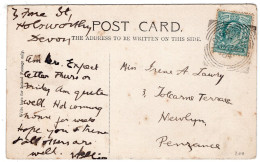 7 Fore St,
Holsworthy
Devon
POST CARD.
THE ADDRESS TO BE WRITTEN ON THIS SIDE.
Expect
letter Thurs or
Friday. Am quite
well. Not coming
home for week
Hope you &
all are
well.
Miss Irene A Lawry
3 Terrace
Newlyn
Penzance